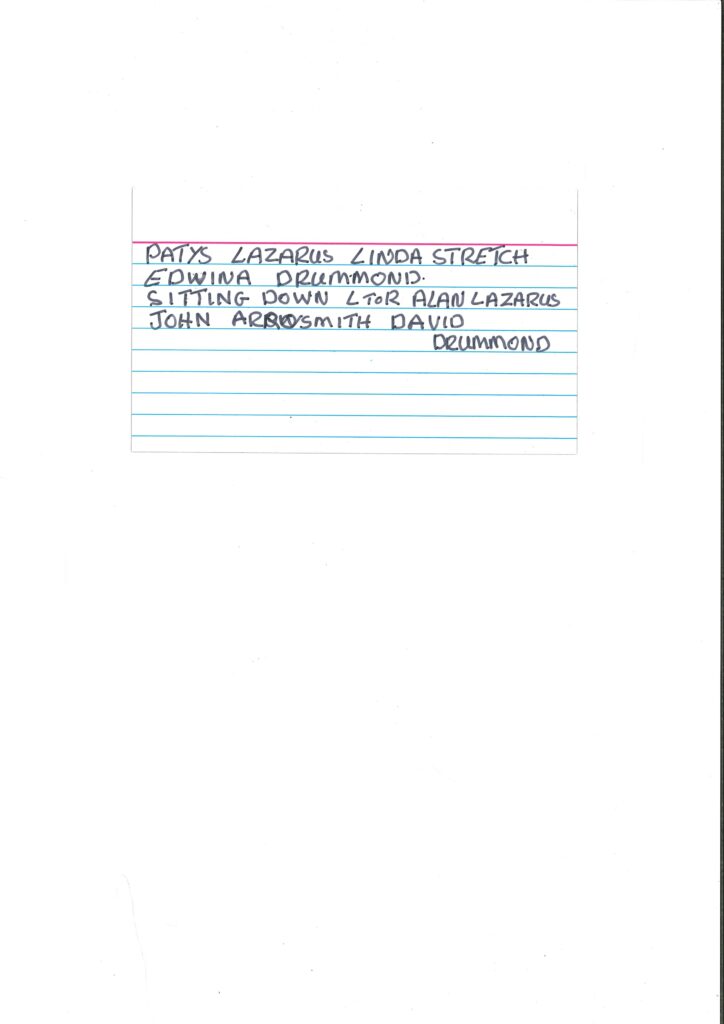 PATYS LAZARUS LINDA STRETCH
EDWINA DRUMMOND.
SITTING DOWN L TO R ALAN LAZARUS
JOHN ARROWSMITH DAVID
DRUMMOND